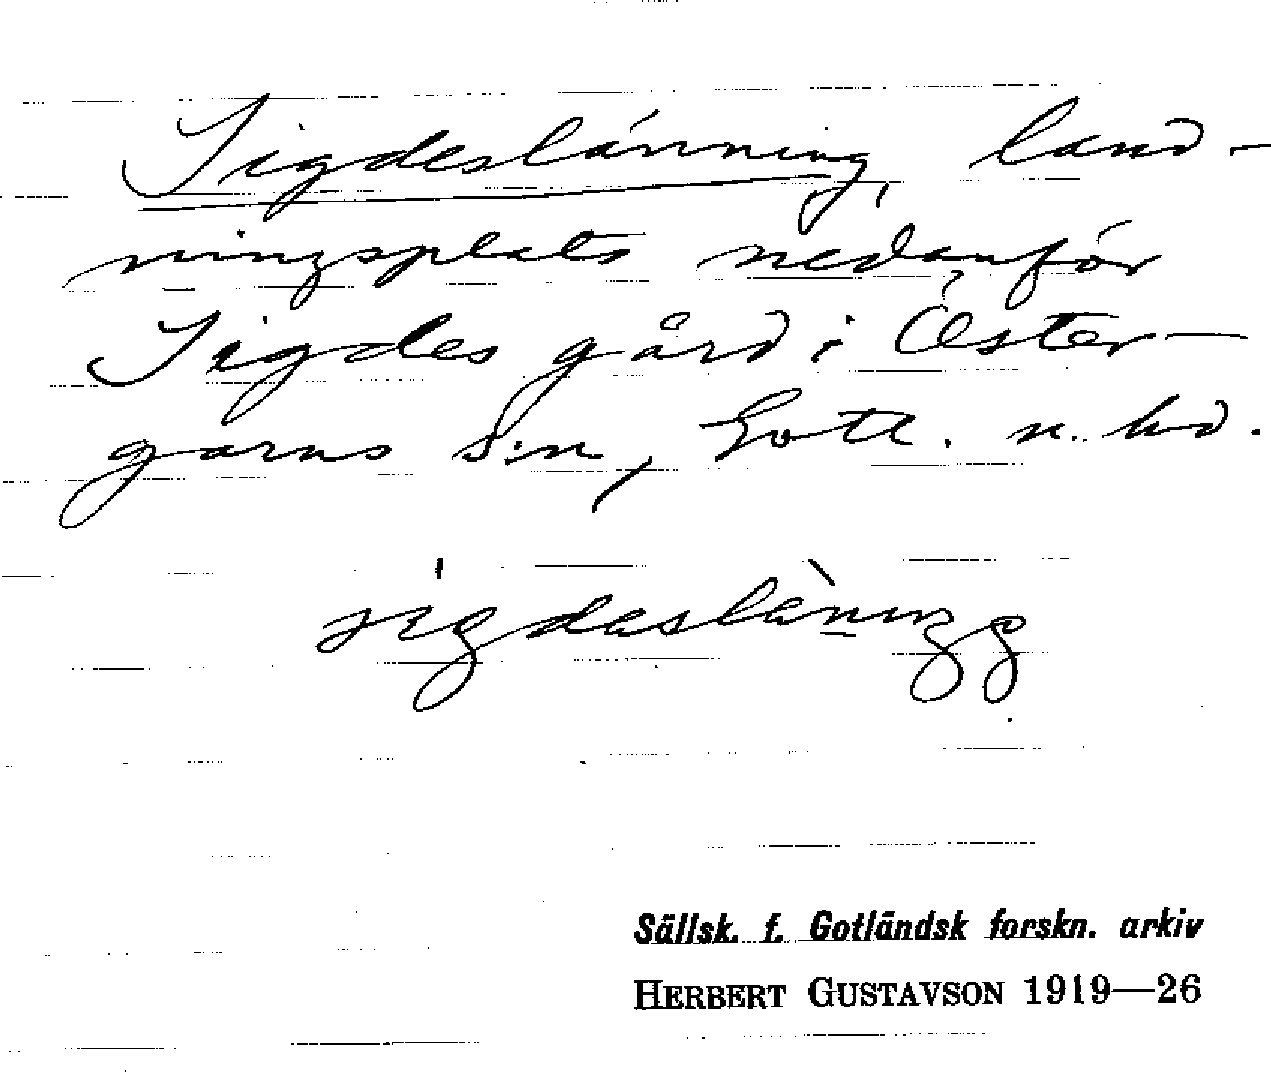 Sigdeslänning, land-
ningsplats nedanför
Sigdes gård i Öster-
garns s:n, Gotl. n. hd.
sigdaslänıngg
Sällsk. f. Gotländsk forskn. arkiv
HERBERT GUSTAVSON 1919—26